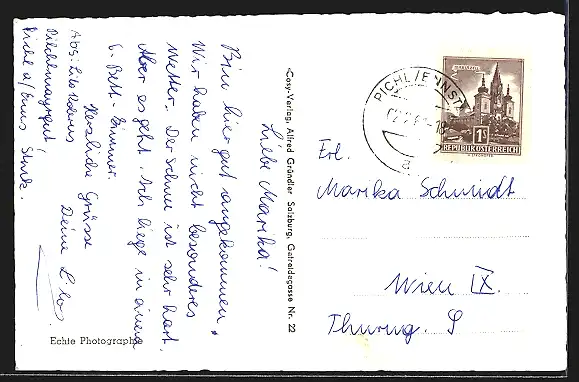 Liebe Marika!
Bin hier gut angekommen.
Wir haben nicht besonderes
Wetter. Der Schnee ist sehr hart.
Aber es geht. Ich liege in einem
6 Bett-Zimmer.
Herzliche Grüsse
Deine
Abs:
Pichlmayrgut
Pichl a/Enns Stmk.
Echte Photographie
«Cosy-Verlag, Alfred Gründler Salzburg, Getreidegasse Nr. 22
PICHL/ENNSTAL
a
MARIAZELL
1S
REPUBLIK ÖSTERREICH
Frl.
Marika Schmidt
Wien IX.
Thurng. 8